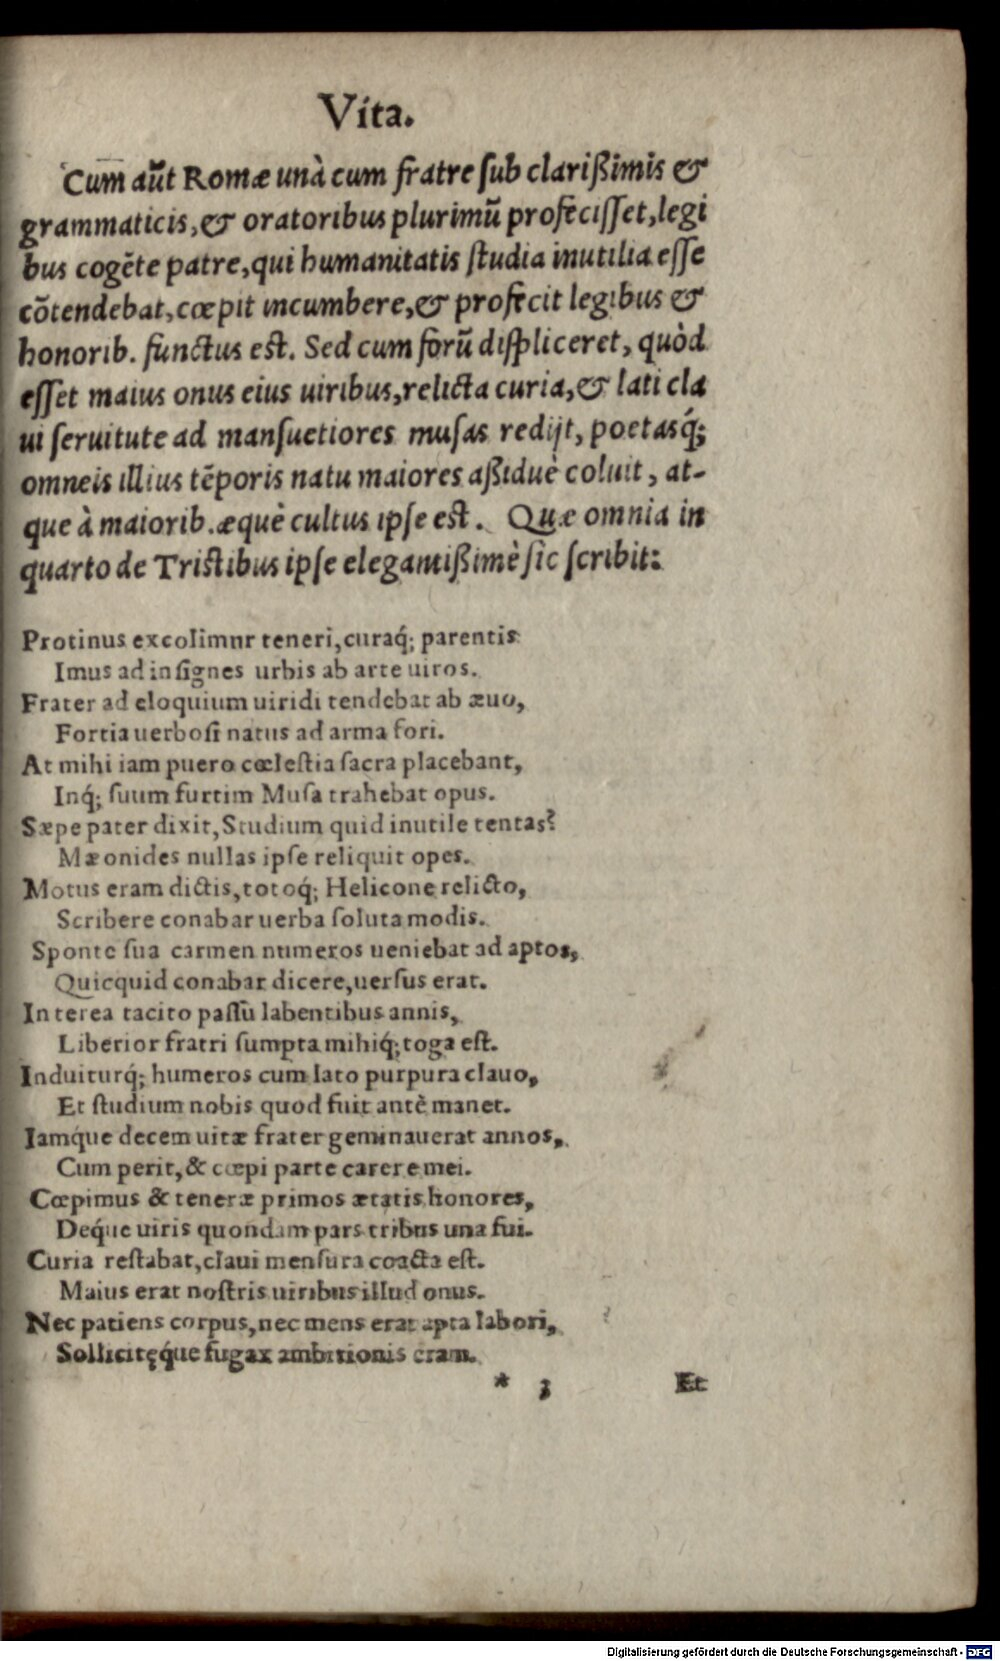 Vita.
Cum aũt Romæ unà cum fratre ſub clarißimis &
grammaticis, & oratoribus plurimũ profeciſſet, legi
bus cogẽte patre, qui humanitatis ſtudia inutilia eſſe
cõtendebat, cœpit incumbere, & profecit legibus &
honorib. functus eſt. Sed cum forũ diſpliceret, quòd
eſſet maius onus eius uiribus, relicta curia, & lati cla
ui ſeruitute ad manſuetiores muſas redijt, poetasq́;
omneis illius tẽporis natu maiores aßiduè coluit, at-
que à maiorib. æquè cultus ipſe eſt. Quæ omnia in
quarto de Triſtibus ipſe elegantißimè ſic ſcribit:
Protinus excolimnr teneri, curaq́; parentis
Imus ad inſignes urbis ab arte uiros.
Frater ad eloquium uiridi tendebat ab æuo,
Fortia uerboſi natus ad arma fori.
At mihi iam puero cœleſtia ſacra placebant,
Inq́; ſuum furtim Muſa trahebat opus.
Sæpe pater dixit, Studium quid inutile tentas?
Mæonides nullas ipſe reliquit opes.
Motus eram dictis, totoq́; Helicone relicto,
Scribere conabar uerba ſoluta modis.
Sponte ſua carmen numeros ueniebat ad aptos,
Quicquid conabar dicere, uerſus erat.
Interea tacito paſſu labentibus annis,
Liberior fratri ſumpta mihiq́; toga eſt.
Induiturq́; humeros cum lato purpura clauo,
Et ſtudium nobis quod fuit antè manet.
Iamque decem uitæ frater geminauerat annos,
Cum perit, & cœpi parte carere mei.
Cœpimus & teneræ primos ætatis honores,
Deq́ue uiris quondam pars tribus una fui.
Curia reſtabat, claui menſura coacta eſt.
Maius erat noſtris uiribus illud onus.
Nec patiens corpus, nec mens erat apta labori,
Sollicitęq́ue fugax ambitionis eram.
* 3 Et
Digitalisierung gefördert durch die Deutsche Forschungsgemeinschaft - DFG